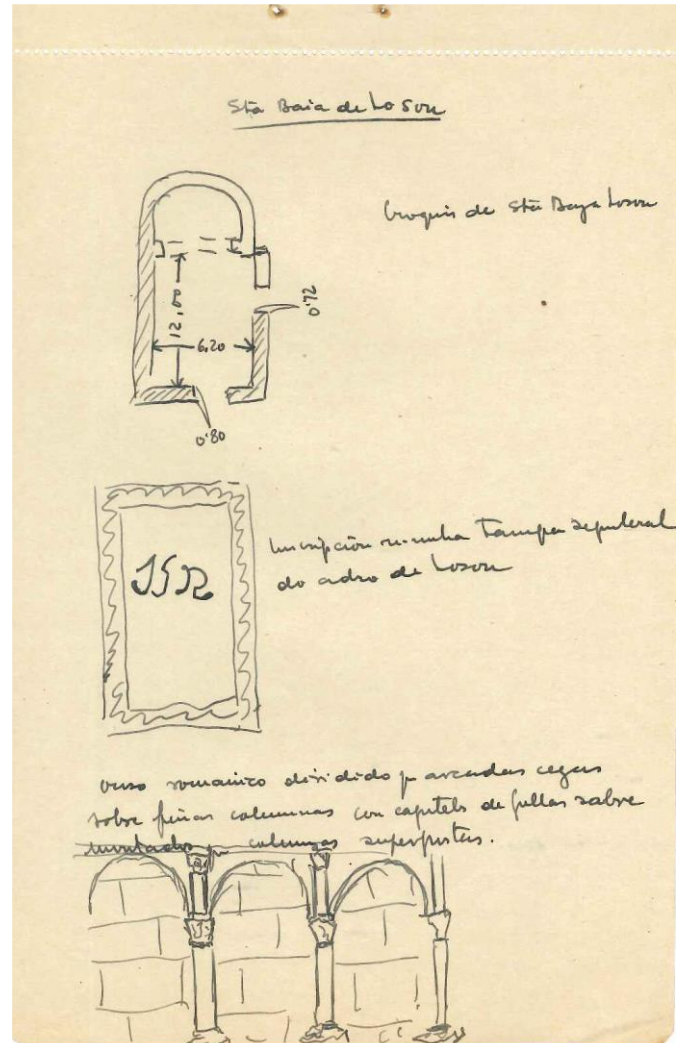 Sta Baia de Loson
Croquis de Sta Baya Loson
12,00
6,20
0'72
0'80
Inscripción n-unha Tampa sepulcral
do adro de Loson
JSR
románico dividido p arcadas cegas
sobre finas columnas con capitels de follas sobre
columnas superpostas.